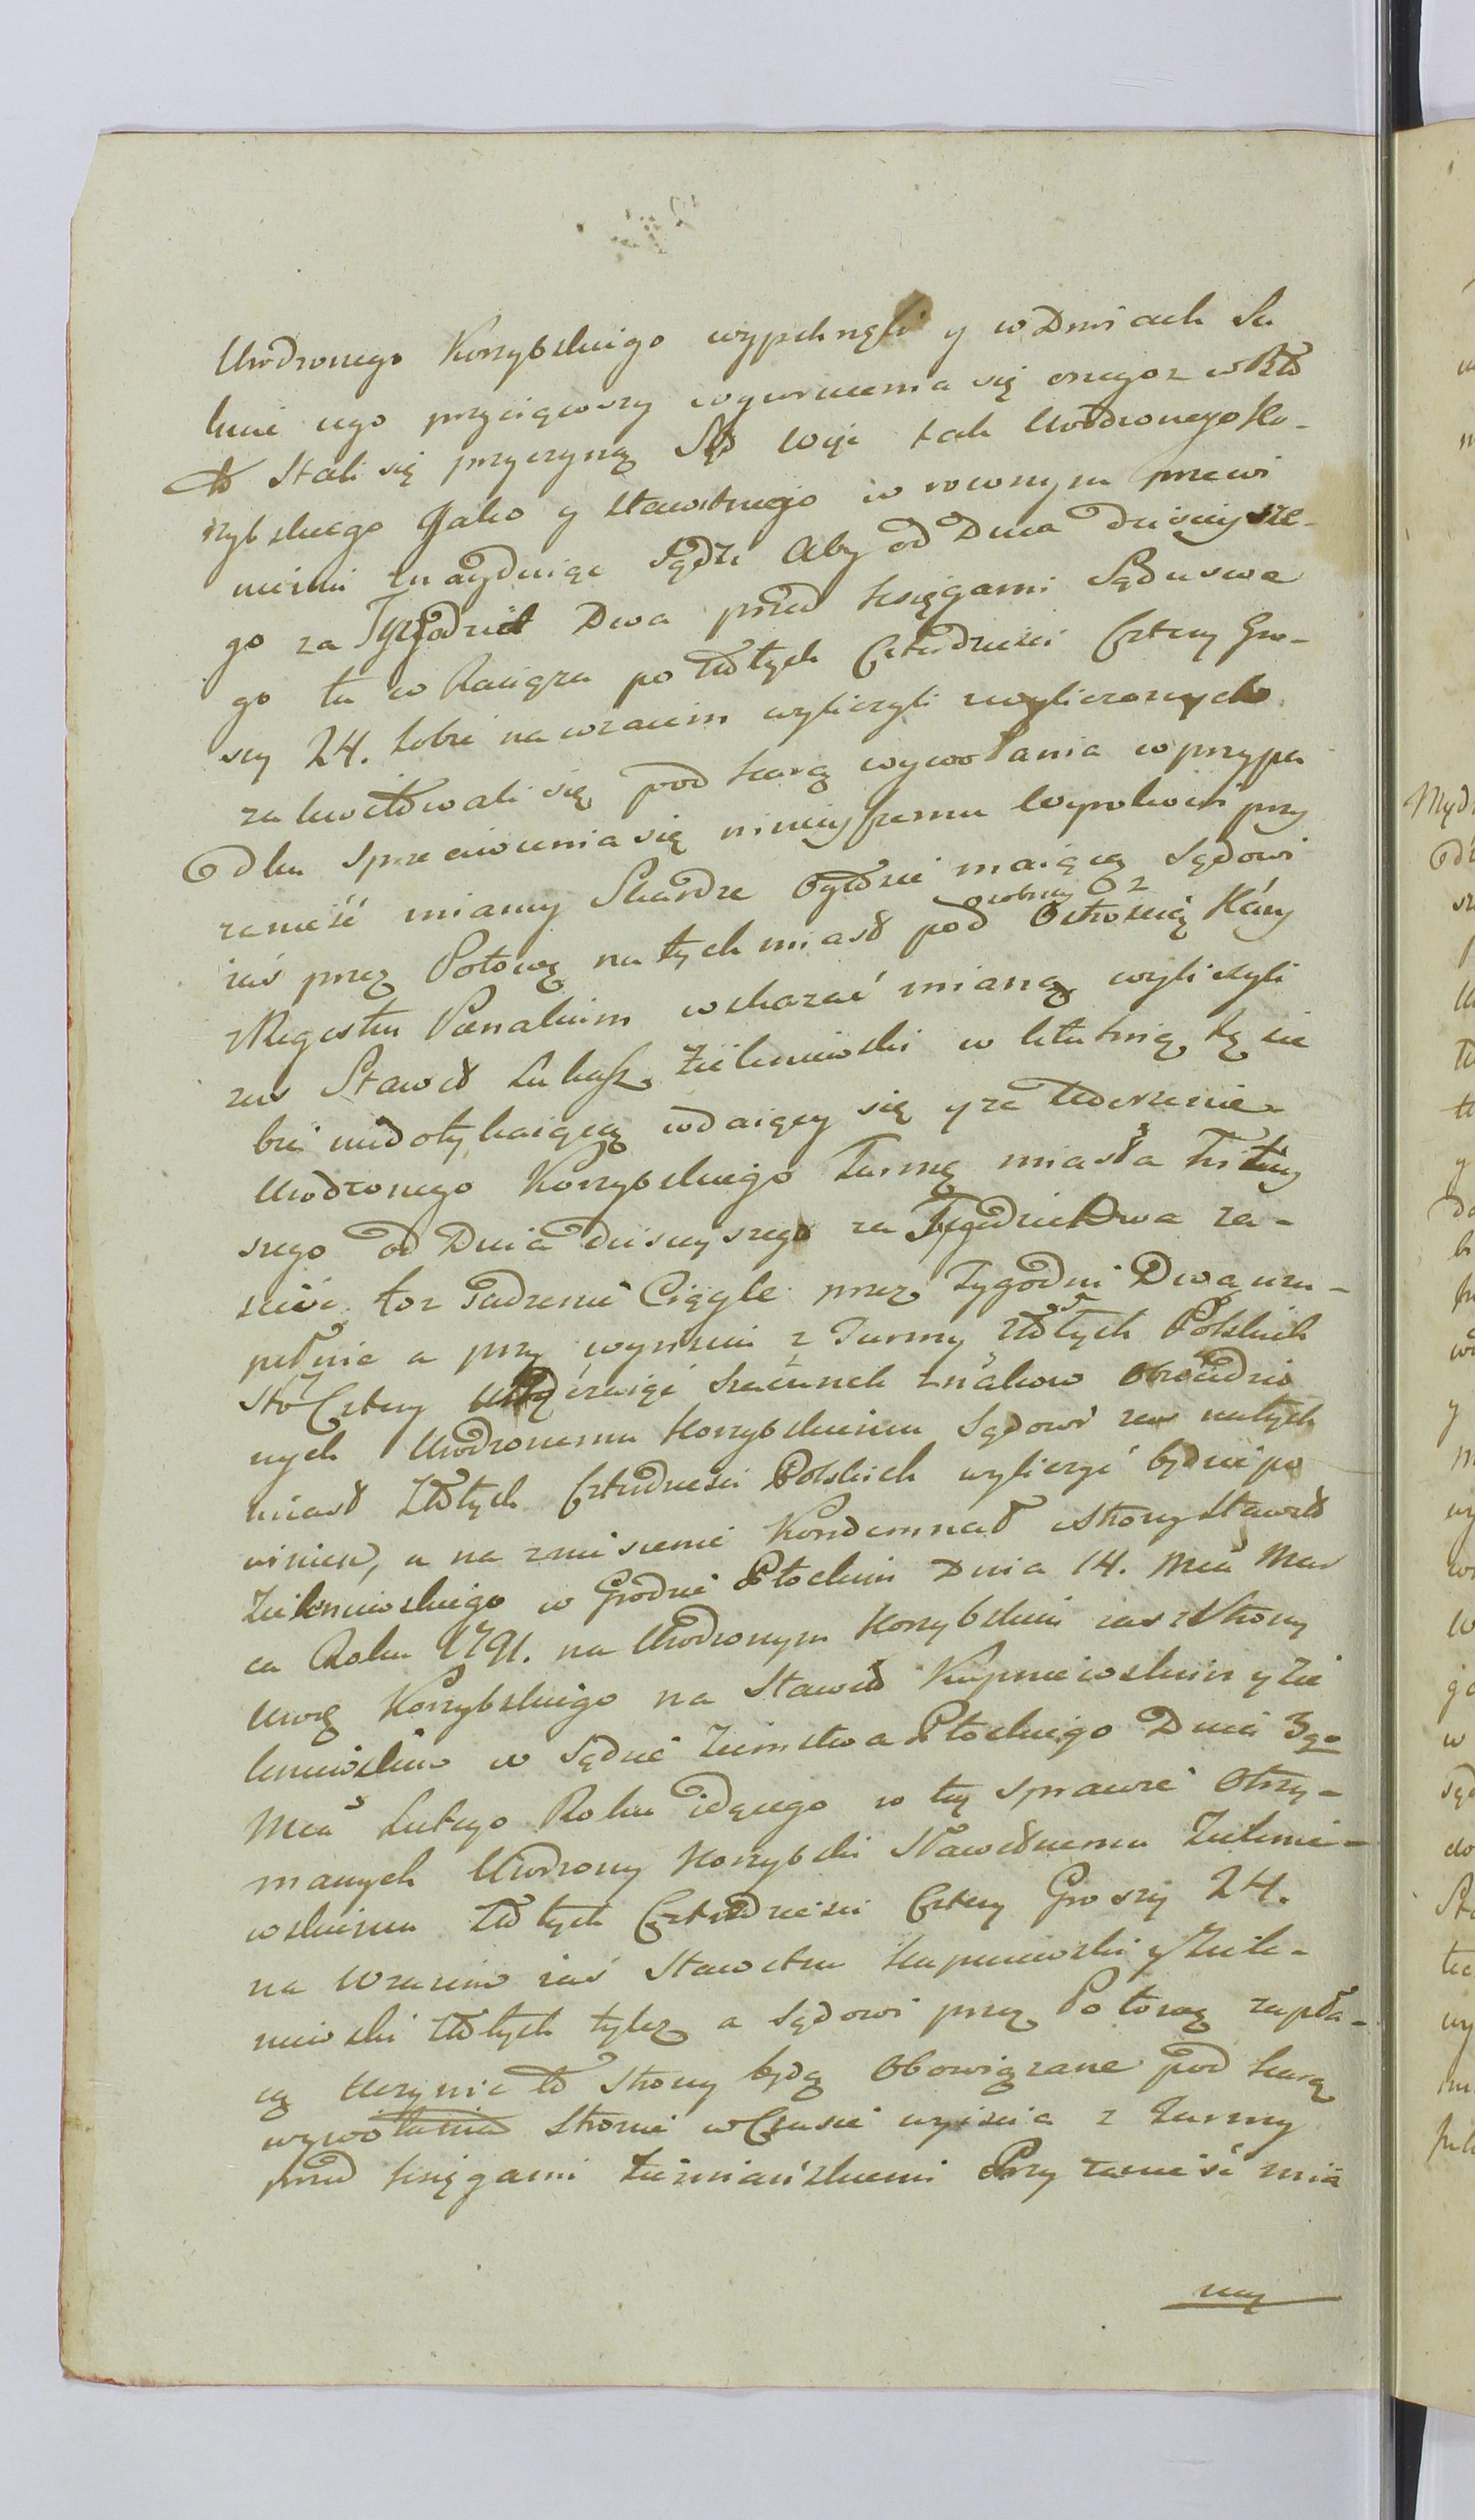 Urodzonego Korzybskiego wypchnęli y w Dniach Su
kni iego przyciąwszy wywrucenia się onegoż w Bło
to stali się przyczyną Sąd więc tak Urodzonego Ko-
rzybskiego Jako y Sławetnego w rownym przewi
nieniu znayduiąc Sądzi Aby od Dnia dzisieysze-
go za Tygodni Dwa przed Księgami Sądu swe
go tu w Raciążu po Złotych Czterdzieści Cztery Gro-
szy 24. Sobie na wzaiem wyliczyli z wyliczonych
zakwitowali się pod karą wywołania w przypa
dku sprzeciwienia się ninieyszemu Wyrokowi przy
zaniesć mianey Skardze bydź maiącą Sądowi
zaś przez Połowę natychmiast pod Ostrością osobney Oz Kary
z Regestru Pœnalium wskazać mianą wyliczyli
zaś Sławet Łukasz Zieleniewski w kłutnię tę sie
bie niedotykaiącą wdaiący się y za Uderzenie
Urodzonego Korzybskiego Turmę miasta tuteiy
szego od Dnia dzisieyszego za Tygodni Dwa za-
sieść toż siedzenie Ciągle przez Tygodni Dwa uzu-
pełnić a przy wyisciu z Turmy Złotych Polskich
Sto Cztery szacunek znakow
nych Urodzonemu Korzybskiemu Sądowi zaś natych
miast Złotych Czterdzieści Polskich wyliczyć będzie po
winien, a na zniesienie Kondemnat z strony Sławet
Zieleniewskiego w Grodzie Płockim Dnia 14. Mca Mar
ca Roku 1791. na Urodzonym Korzybskim zaś z Strony
Urog Korzybskiego na Sławet Kupniewskim y Zie
leniewskim w Sądzie Ziemstwa Płockiego Dnia 3go
Mca Lutego Roku idącego w tey sprawie Otrzy-
manych Urodzony Korzybski Sławetnemu Zielenie-
wskiemu Złotych Czterdzieści Cztery Groszy 24.
na wzaiem zaś Sławetni Kupniewski y Ziele-
niewski Złotych tylez a Sądowi przez Połowę zapła-
cą Uczynić to Strony będą Obowiązane pod karą
wywołania Stronie w Czasie wyiscia z Turmy
przed Księgami Ziemiańskiemi Przy zanieść mia
ney